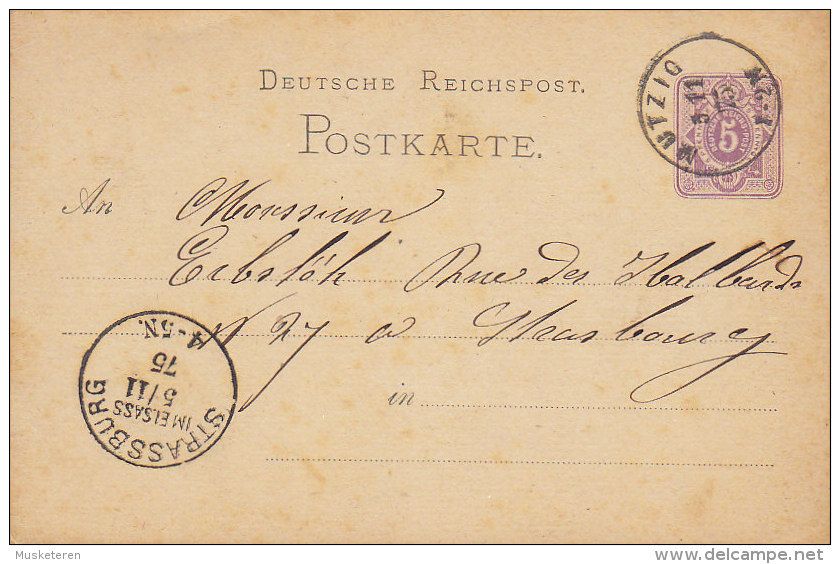 DEUTSCHE REICHSPOST.
POSTKARTE.
MUTZIG
5 11
75
5
An Monsieur
Erbslöh Rue des Hallbards
N 27 a Strasbourg
in
STRASSBURG
IM ELSASS
5/11
75
4-5N.
Musketeren
www.delcampe.net